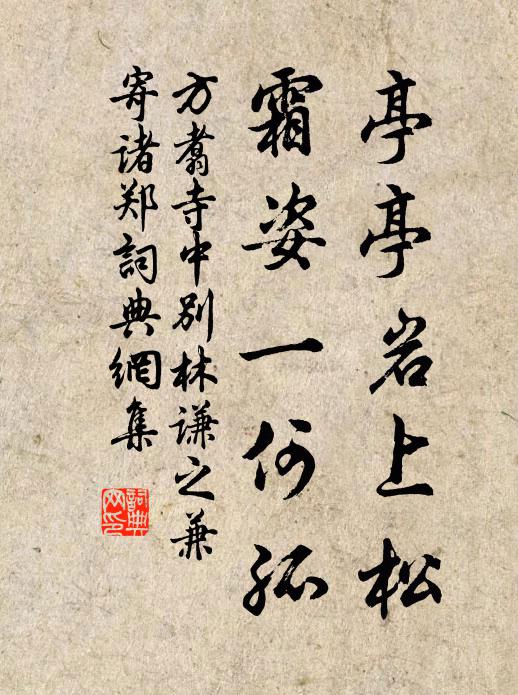 亭亭岩上松
霜姿一何孤
方翥寺中别林谦之兼
寄诸郑詞典網集
詞典
网印